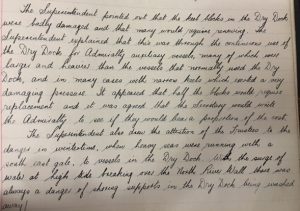 The Superintendent pointed out that the keel blocks in the Dry Dock
were badly damaged and that many would require renewing. The
Superintendent explained that this was through the continuous use of
the Dry Dock for Admiralty auxiliary vessels, many of which were
larger and heavier than the vessels that normally used the Dry
Dock, and in many cases with narrow keels which exerted a very
damaging pressure. It appeared that half the blocks would require
replacement and it was agreed that the Secretary would write
the Admiralty to see if they would bear a proportion of the cost.
The Superintendent also drew the attention of the Trustees to the
danger in wintertime, when heavy seas were running with a
south east gale, to vessels in the Dry Dock. With the surge of
water at high tide breaking over the North River Wall there was
always a danger of shoring supports in the Dry Dock being washed
away.